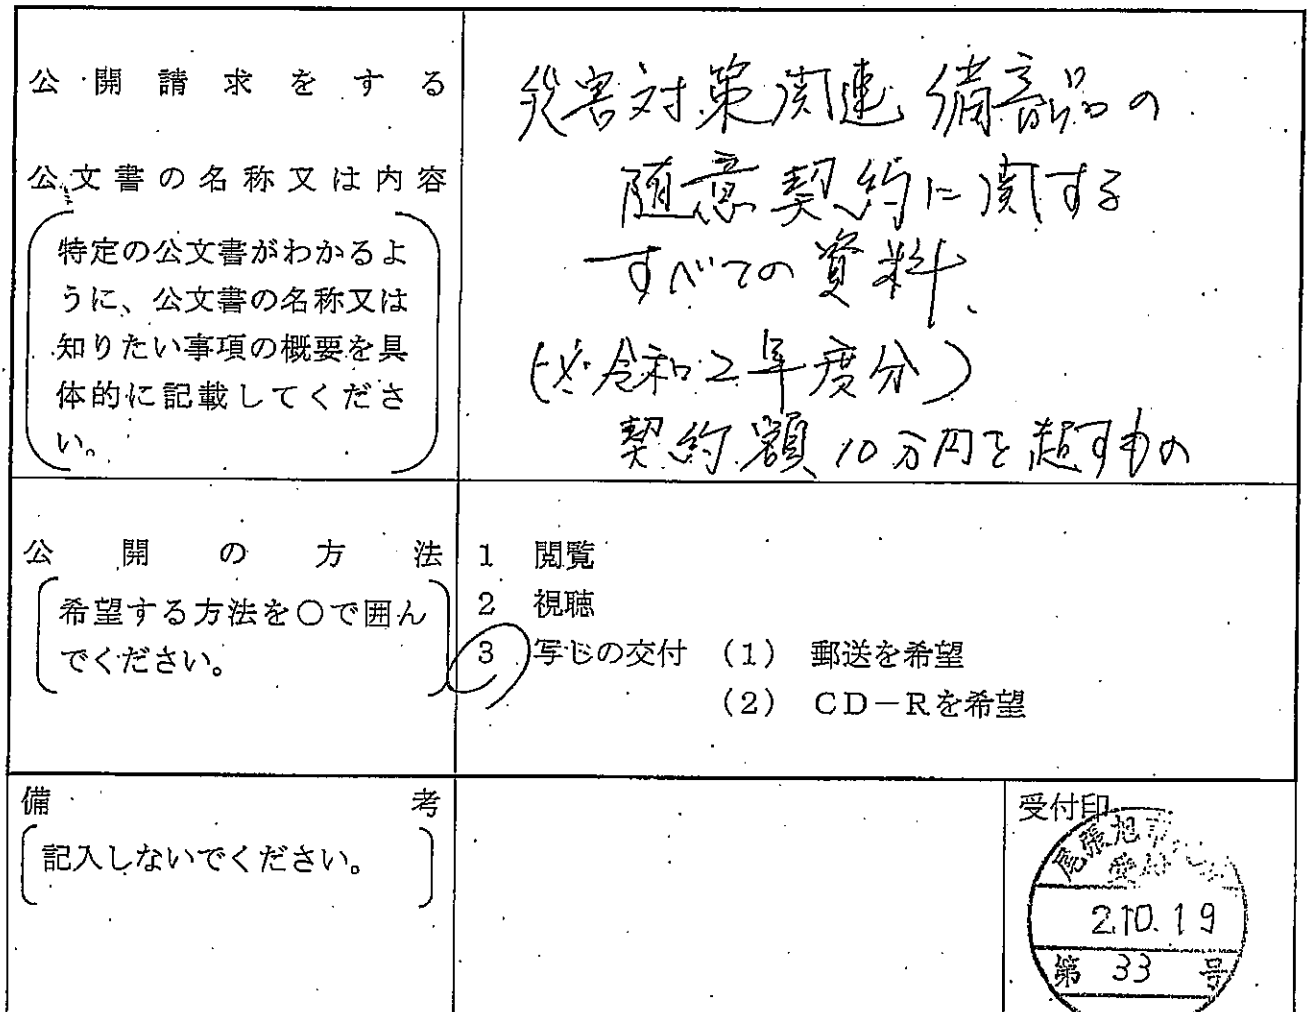 公開請求をする
公文書の名称又は内容
特定の公文書がわかるよ
うに、公文書の名称又は
知りたい事項の概要を具
体的に記載してくださ
い。
災害対策関連備品の
随意契約に関する
すべての資料、
令和2年度分)
契約額10万円を超すもの
公開の方法
希望する方法を○で囲ん
でください。
1 閲覧
2 視聴
3 写しの交付 (1) 郵送を希望
(2) CD-Rを希望
備考
記入しないでください。
受付印
尾張旭市
受付
2.10.19
第 33 号